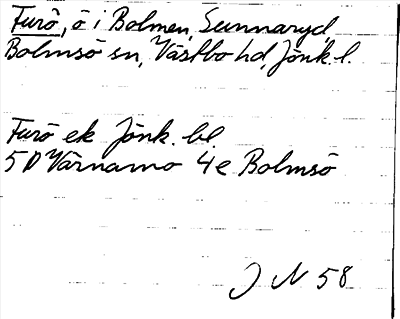 Furö, ö i Bolmen, Sunnaryd,
Bolmsö sn, Västbo hd, Jönk. l.
Furö ek Jönk. bl.
5 D Värnamo 4e Bolmsö
J N 58